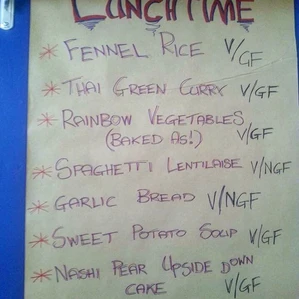 LUNCHTIME
* FENNEL RICE V/GF
* THAI GREEN CURRY V/GF
* RAINBOW VEGETABLES
(BAKED AS!) V/GF
* SPAGHETTI LENTILAISE V/NGF
* GARLIC BREAD V/NGF
* SWEET POTATO SOUP V/GF
* NASHI PEAR UPSIDE DOWN
CAKE V/GF